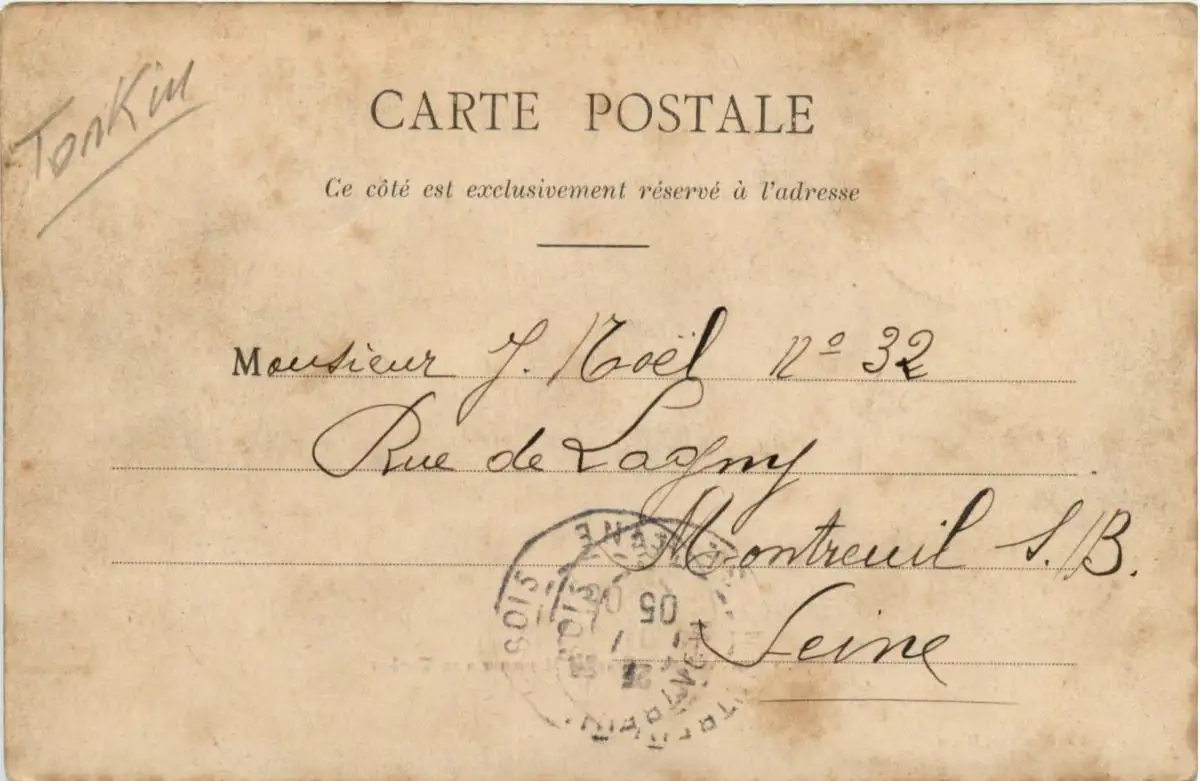 Tonkin
CARTE POSTALE
Ce côté est exclusivement réservé à l'adresse
Monsieur J. Noël Nº 32
Rue de Lagny
Montreuil S./B.
Seine
05